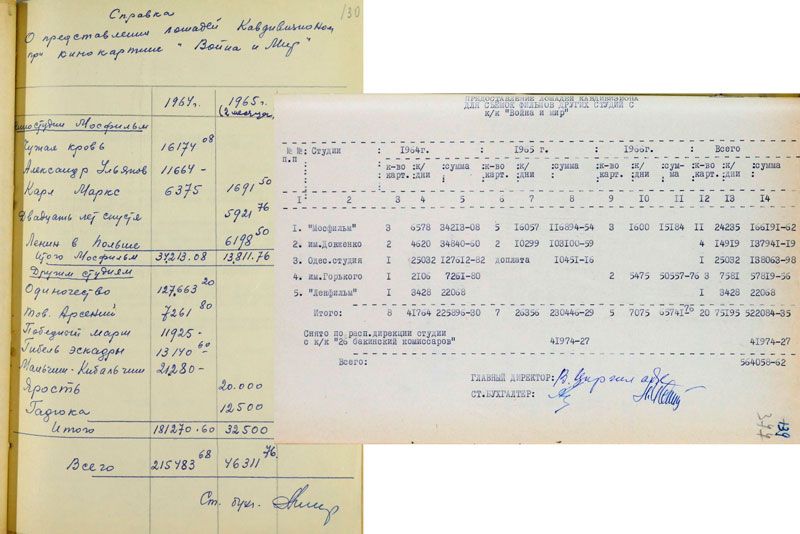 130
Справка
О представлении лошадей Кавдивизионом
при кинокартине "Война и Мир"
1964г. 1965г.
(2 месяца)
Киностудии Мосфильм
Чужая кровь 16174 08
Александр Ульянов 11664 -
Карл Маркс 6375 1691 50
Двадцать лет спустя 5921 76
Ленин в Польше 6198 50
Итого Мосфильм 34213.08 13,811.76
Другим студиям
Одиночество 127,663 20
Тов. Арсений 7261 80
Победный марш 11925 -
Гибель эскадры 13140 60
Мальчиш-Кибальчиш 21280 -
Ярость 20.000
Гадюка 12500
Итого 181270.60 32500
Всего 215483 68 46311 76
Ст. бухг.
ПРЕДОСТАВЛЕНИЕ ЛОШАДЕЙ КАВДИВИЗИОНА
ДЛЯ СЪЕМОК ФИЛЬМОВ ДРУГИХ СТУДИЙ С
к/к "Война и мир"
№ №: Студии : 1964г. : 1965 г. : 1966г. : Всего
п.п : к-во :к/ :сумма :к-во :к/ :сумма :к-во :к/ :сум- :к-во:к/ :сумма
: карт. :дни карт. дни карт. дни ма карт. дни
I 2 3 4 5 6 7 8 9 10 II 12 13 I4
I. "Мосфильм" 3 6578 34213-08 5 I6057 II6894-54 3 I600 I5I84 II 24235 I66I9I-62
2. им.Довженко 2 4620 34840-60 2 I0299 I03I00-59 4 I49I9 I3794I-I9
3. Одес.студия I 25032 I276I2-82 доплата I045I-I6 I 25032 I38063-98
4. им.Горького I 2I06 726I-80 2 5475 50557-76 3 758I 578I9-56
5. "Ленфильм" I 3428 22068 I 3428 22068
Итого: 8 4I764 225896-30 7 26356 230446-29 5 7075 6574I 76 20 75I95 522084-35
Снято по расп.дирекции студии
с к/к "26 бакинский комиссаров" 4I974-27 4I974-27
Всего: 564058-62
ГЛАВНЫЙ ДИРЕКТОР:
СТ.БУХГАЛТЕР: